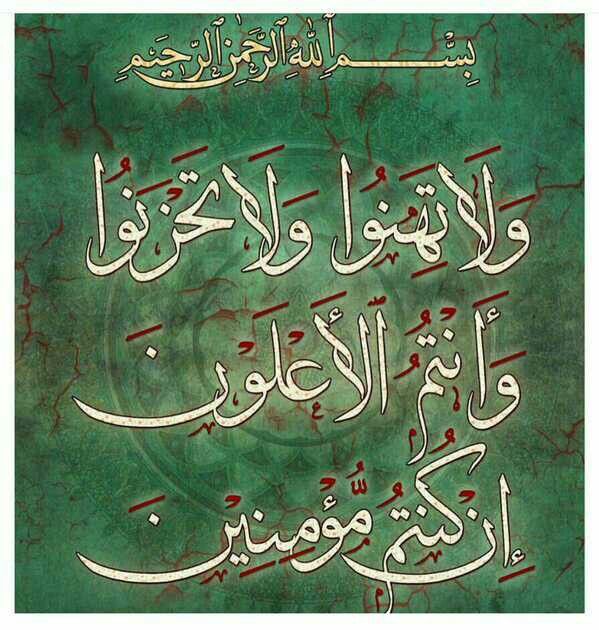 بِسْمِ اللهِ الرَّحْمٰنِ الرَّحِيْمِ
وَلَا تَهِنُوا وَلَا تَحْزَنُوا
وَأَنْتُمُ الْأَعْلَوْنَ
إِنْ كُنْتُمْ مُؤْمِنِيْنَ